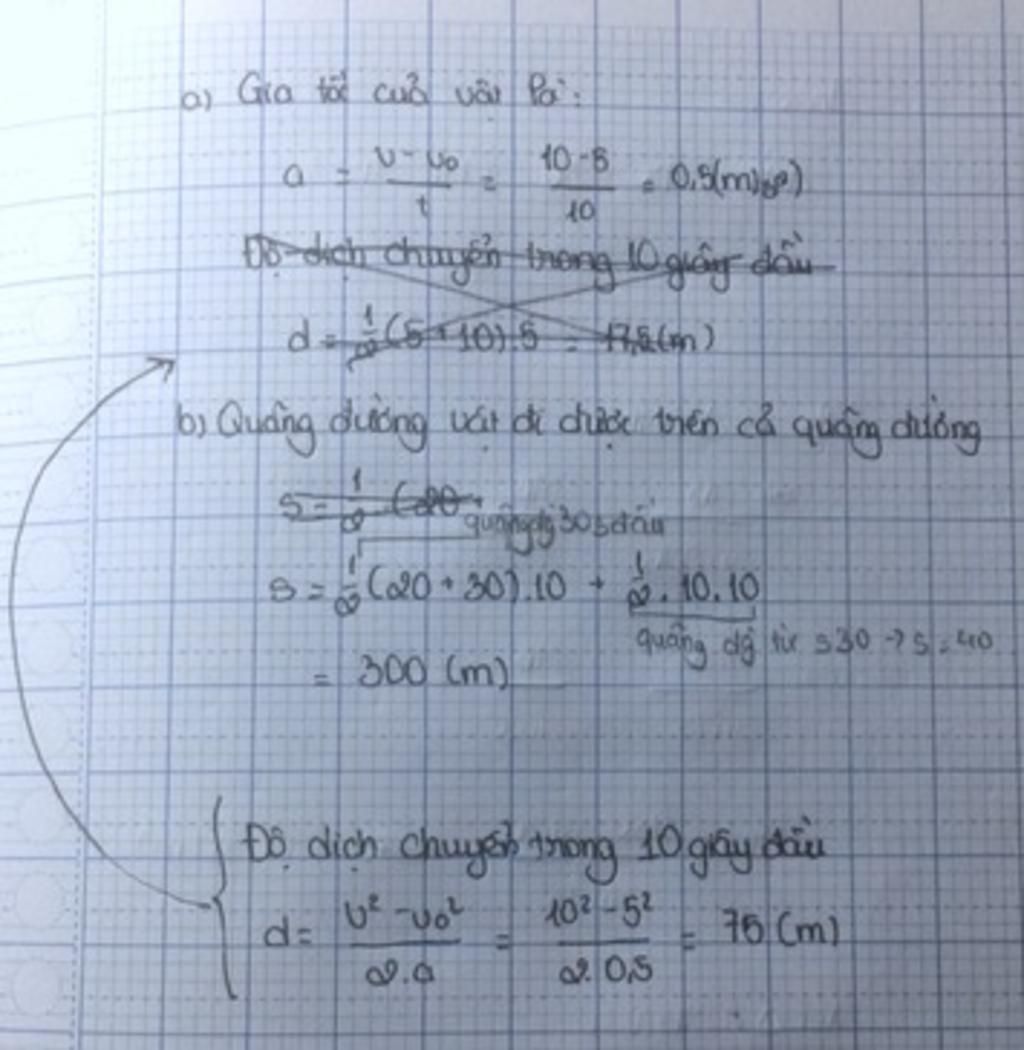 a) Gia tốc của vật là:
a = (v - v₀)/t = (10 - 5)/10 = 0,5(m/s²)
Độ dịch chuyển trong 10 giây đầu
d = 1/2 (5 + 10).5 = 17,5(m)
b) Quãng đường vật đi được trên cả quãng đường
s = 1/2 (20
quãng đg 30s đầu
s = 1/2 (20 + 30).10 + 1/2 . 10.10
quãng đg từ s30 → s = 40
= 300 (m)
Độ dịch chuyển trong 10 giây đầu
d = (v² - v₀²)/(2.a) = (10² - 5²)/(2. 0,5) = 75 (m)